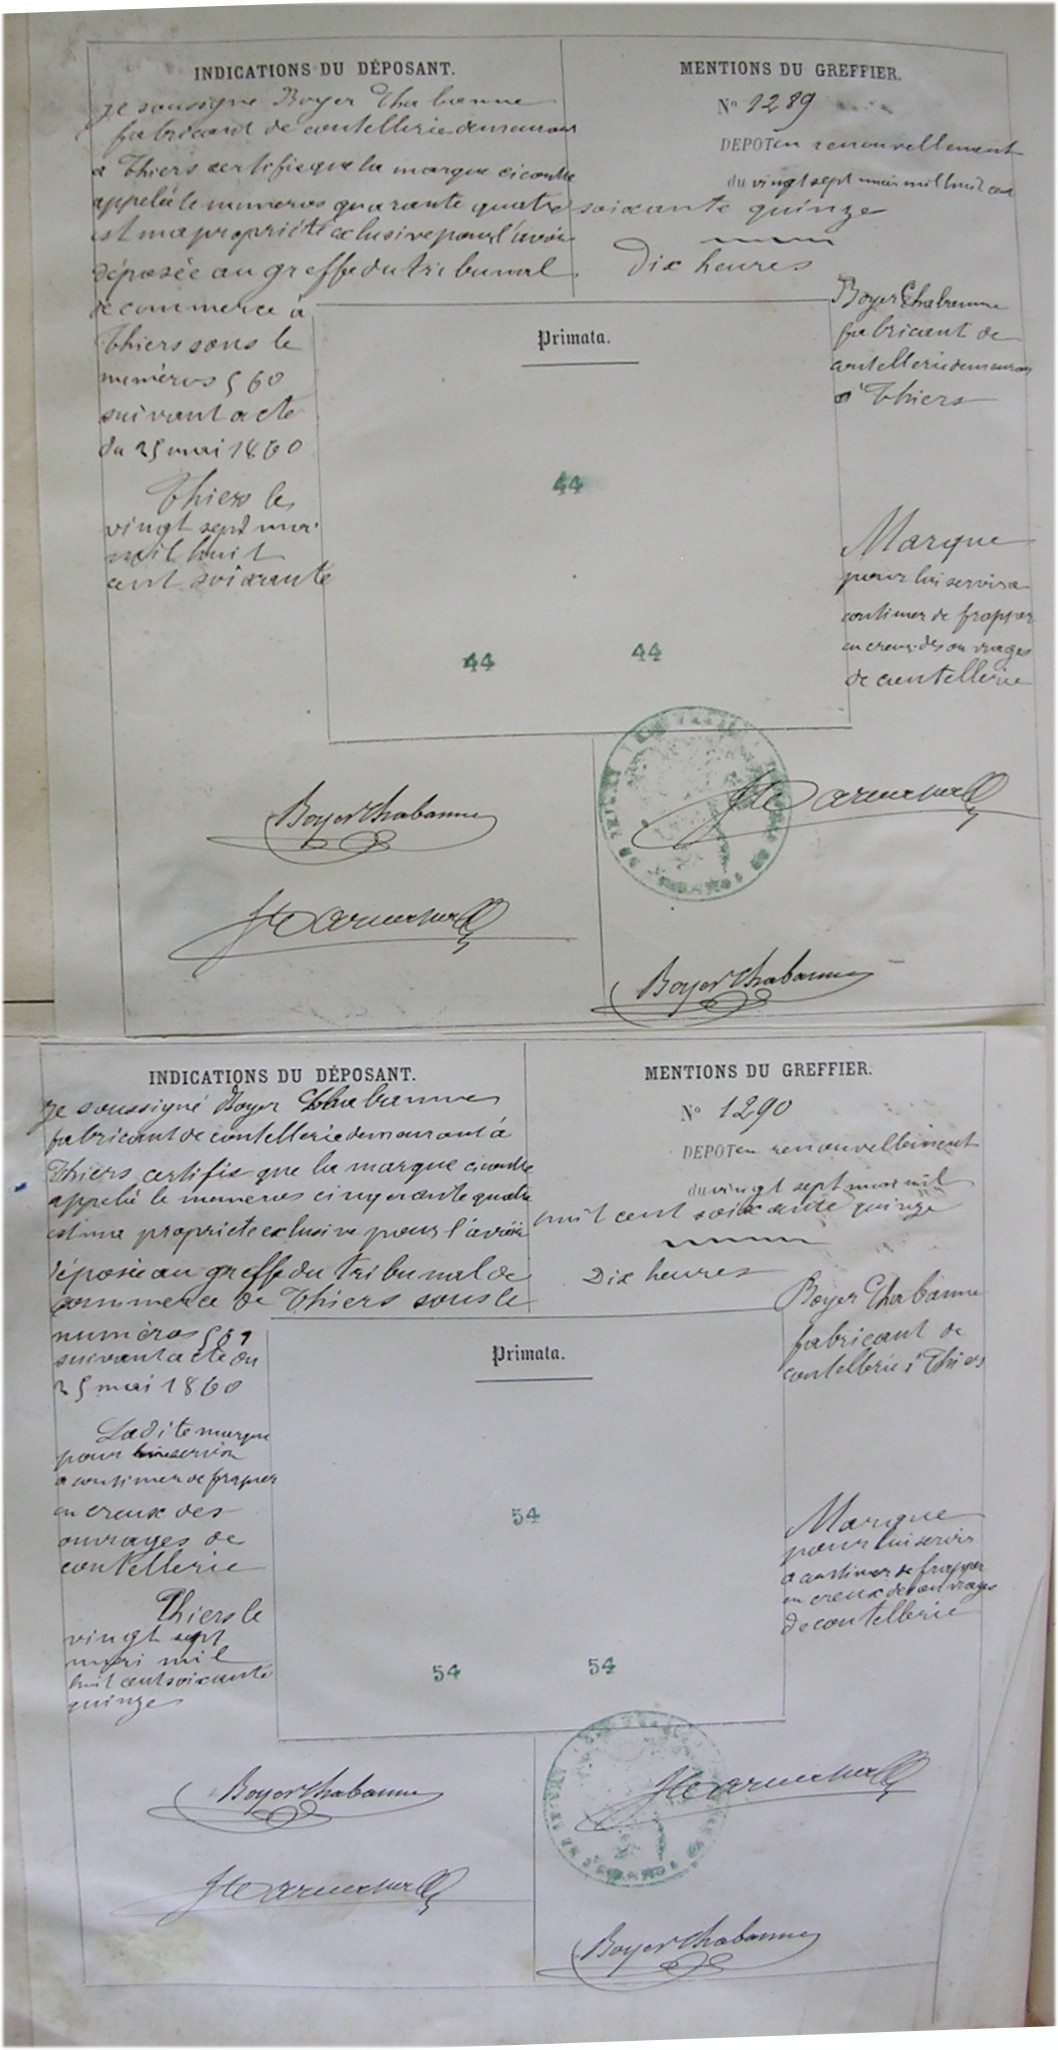 INDICATIONS DU DÉPOSANT.
je soussigné Boyer Chabanne
fabricant de coutellerie demeurant
a Thiers certifie que la marque ci contre
appelée le numeros quarante quatre
est ma propriété exclusive pour l'avoir
déposée au greffe du tribunal
de commerce à
Thiers sous le
numèros 560
suivant acte
du 25 mai 1860
Thiers le
vingt sept mai
mil huit
cent soixante
MENTIONS DU GREFFIER.
N° 1289
DEPOT en renouvellement
du vingt sept mai mil huit cent
soixante quinze
Dix heures
Boyer Chabanne
fabricant de
coutellerie demeurant
a Thiers
Primata.
44
44 44
Marque
pour lui servir a
continuer de frapper
en creux des ouvrages
de coutellerie
Boyer Chabanne
Boyer Chabanne
INDICATIONS DU DÉPOSANT.
je soussigné Boyer Chabanne
fabricant de coutellerie demeurant à
Thiers certifie que la marque ci contre
appelée le numeros cinquante quatre
est ma propriete exclusive pour l'avoir
déposée au greffe du tribunal de
commerce de Thiers sous le
numèros
suivant acte du
25 mai 1860
Ladite marque
pour servir
a continuer de fraper
en creux des
ouvrages de
coutellerie
Thiers le
vingt sept
mai mil
huit cent soixante
quinze
MENTIONS DU GREFFIER.
N° 1290
DEPOT en renouvellement
du vingt sept mai mil
huit cent soixante quinze
Dix heures
Boyer Chabanne
fabricant de
coutellerie à Thiers
Primata.
54
54 54
Marque
pour lui servir
a continuer de frapper
en creux des ouvrages
de coutellerie
Boyer Chabanne
Boyer Chabanne